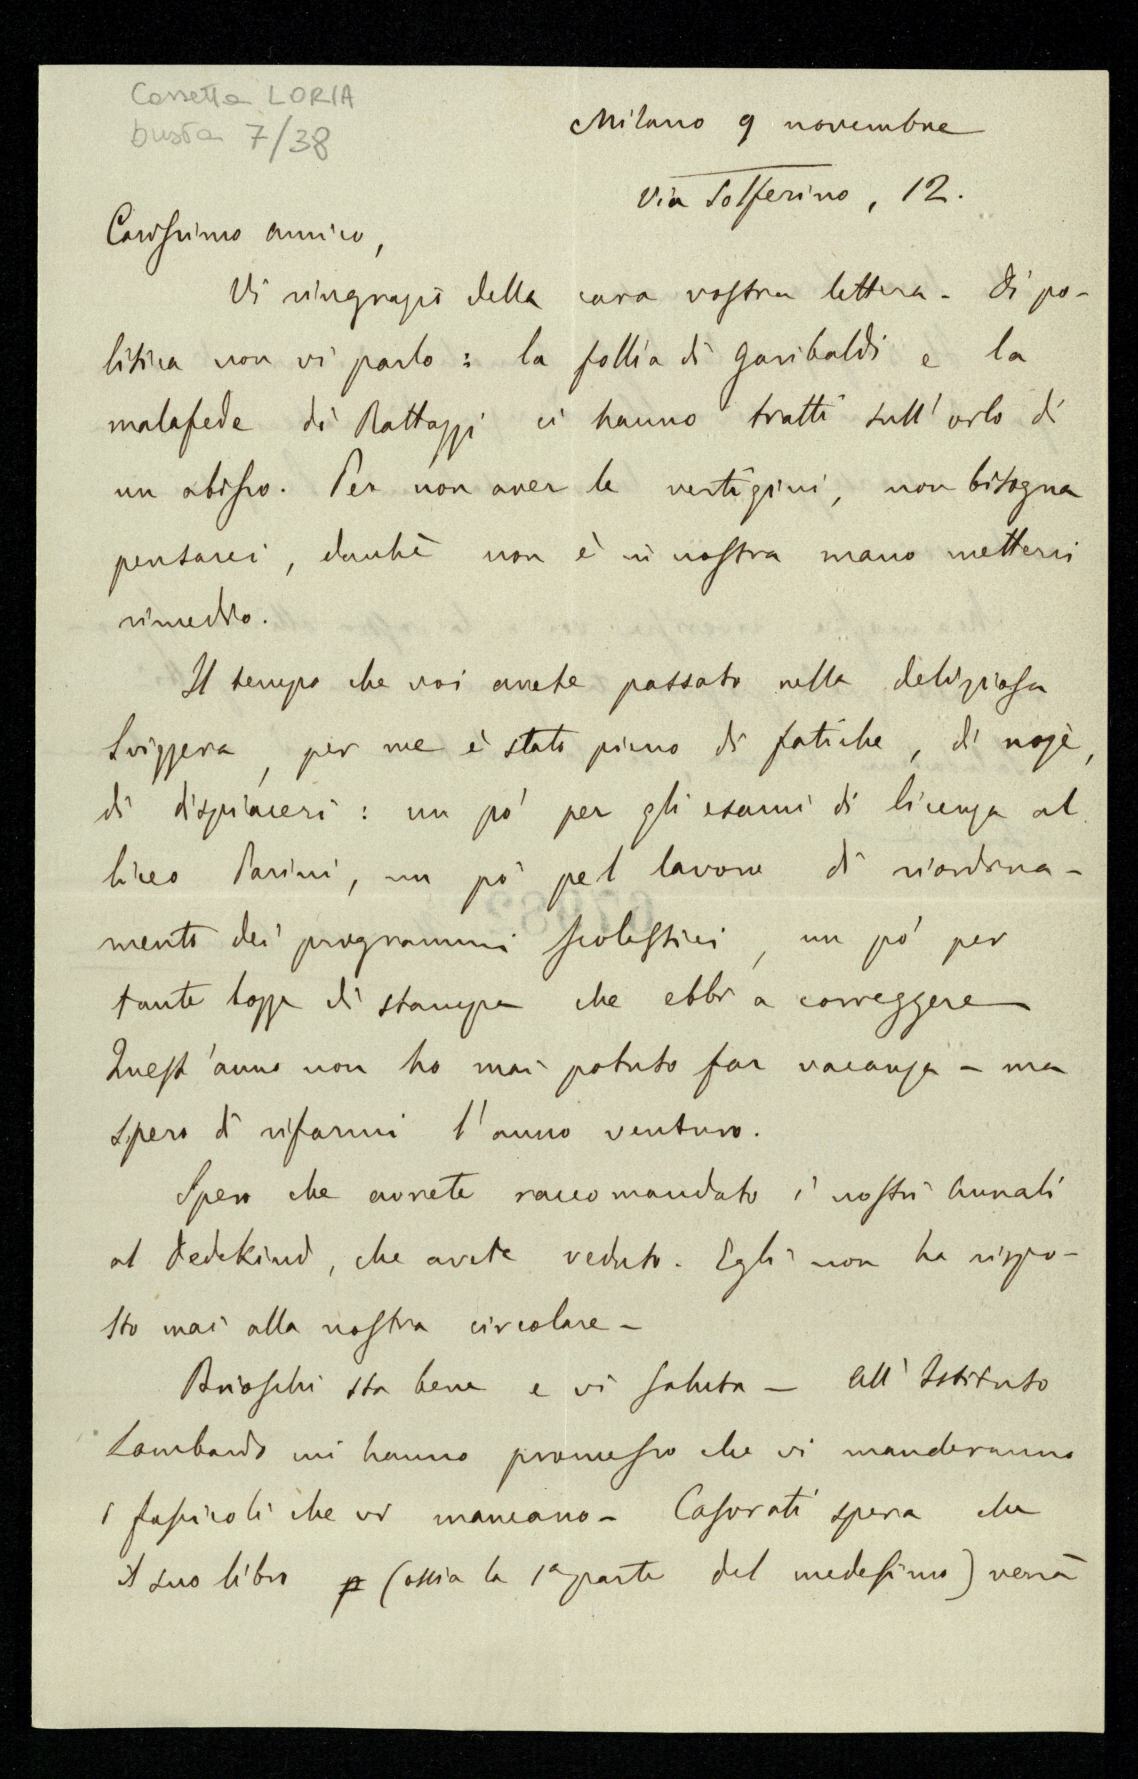 Cassetta LORIA
busta 7/38
Milano 9 novembre
Via Solferino, 12.
Carissimo amico,
Vi ringrazio della cara vostra lettera. Di po-
litica non vi parlo: la follia di Garibaldi e la
malafede di Rattazzi ci hanno tratti sull'orlo di
un abisso. Per non aver le vertigini, non bisogna
pensarci, dacchè non è in nostra mano mettervi
rimedio.
Il tempo che voi avete passato nella deliziosa
Svizzera, per me è stato pieno di fatiche, di noje,
di dispiaceri: un po' per gli esami di licenza al
liceo Parini, un po' pel lavoro di riordina-
mento dei programmi scolastici, un po' per
tante bozze di stampa che ebbi a correggere
Quest'anno non ho mai potuto far vacanza - ma
spero di rifarmi l'anno venturo.
Spero che avrete raccomandato i nostri Annali
al Dedekind, che avete veduto. Egli non ha rispo-
sto mai alla nostra circolare -
Brioschi sta bene e vi saluta - All'Istituto
Lombardo mi hanno promesso che vi manderanno
i fascicoli che vi mancano - Casorati spera che
il suo libro (ossia la 1a parte del medesimo) verrà